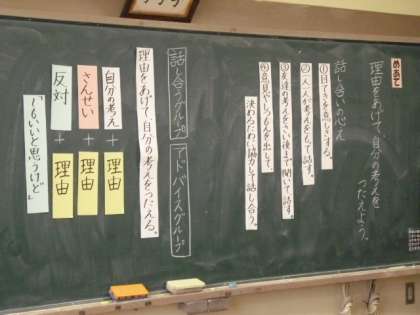 めあて
理由をあげて、自分の考えを
つたえよう。
話し合いの心え
①目てきを意しきする。
②一人一人が考えをもって話す。
③友達の考えをさい後まで聞いて話す。
④意見やしつもんを出して、
決めるためにわい協力して話し合う。
話し合うグループ
アドバイスグループ
理由をあげて、自分の考えをつたえる。
自分の考え+理由
さんせい+理由
反対+理由
「~もいいと思うけど」